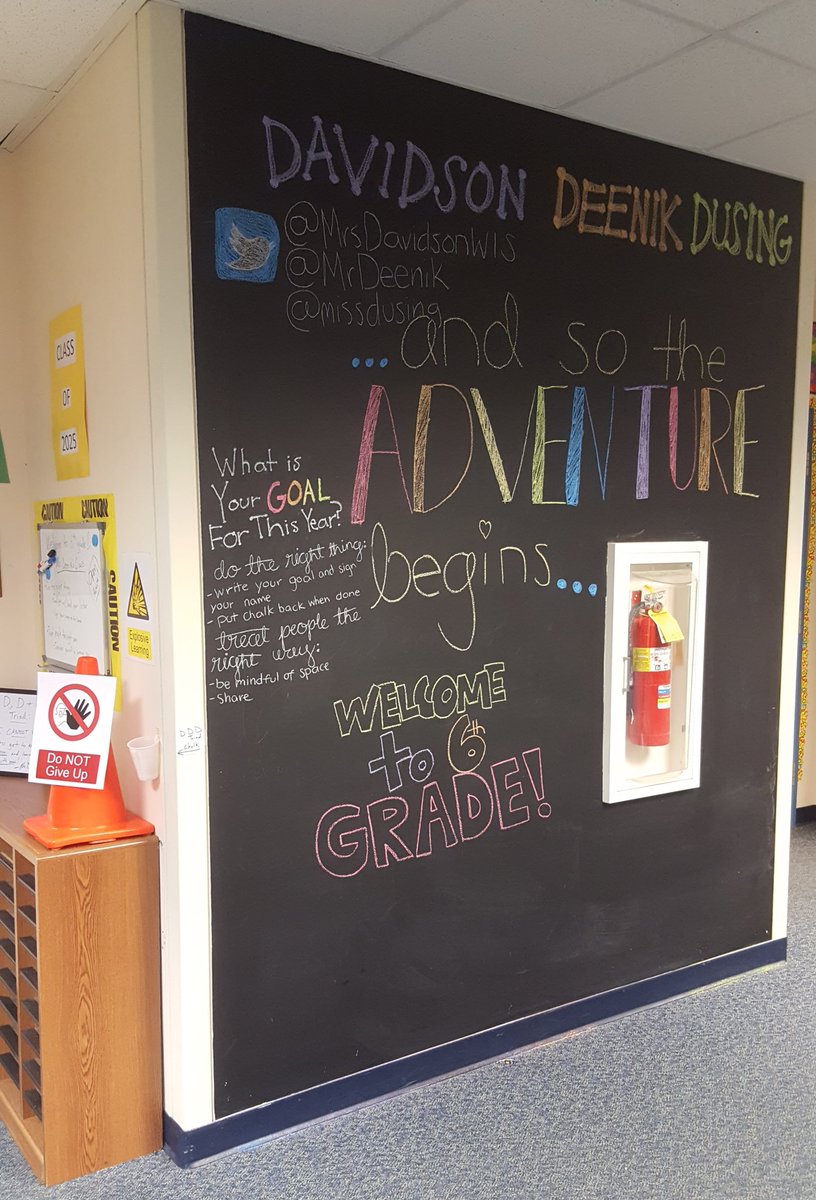 DAVIDSON DEENIK DUSING
@MrsDavidsonWIS
@MrDeenik
@missdusing
...and so the
ADVENTURE
begins...
What is
Your GOAL
For This Year?
do the right thing:
- write your goal and sign
your name
- put chalk back when done
treat people the
right way:
- be mindful of space
- share
WELCOME
to 6th
GRADE!
CLASS
OF
2025
CAUTION CAUTION
CAUTION
Explosive
Learning
Do NOT
Give Up
DDD
chalk